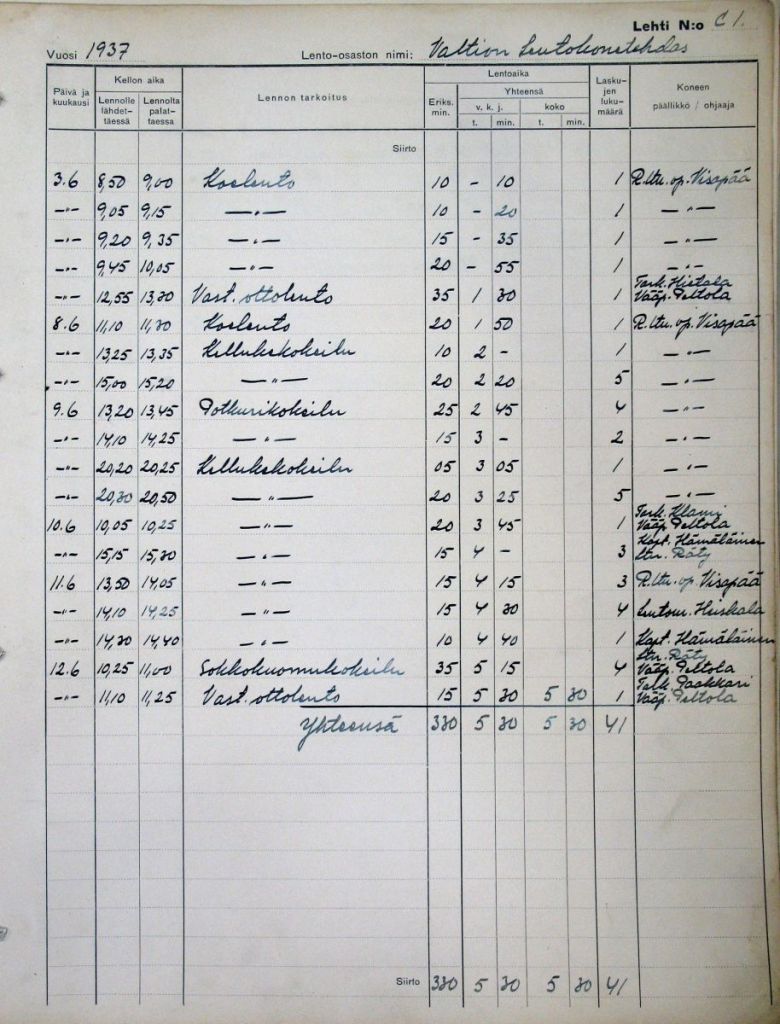 Lehti N:o C 1.
Vuosi 1937 Lento-osaston nimi: Valtion Lentokonetehdas
Päivä ja kuukausi Kellon aika Lennolle lähdettäessä Lennolta palattaessa Lennon tarkoitus Lentoaika Eriks. min. Yhteensä v. k. j. t. min. koko t. min. Laskujen lukumäärä Koneen päällikkö / ohjaaja
Siirto
3.6 8,50 9,00 Koelento 10 - 10 1 R.ltu.op. Visapää
-"- 9,05 9,15 -"- 10 - 20 1 -"-
-"- 9,20 9,35 -"- 15 - 35 1 -"-
-"- 9,45 10,05 -"- 20 - 55 1 -"-
-"- 12,55 13,30 Vast. ottolento 35 1 30 1 Tark. Hietala Vääp. Peltola
8.6 11,10 11,30 Koelento 20 1 50 1 R.ltu.op. Visapää
-"- 13,25 13,35 Kellukekokeilu 10 2 - 1 -"-
-"- 15,00 15,20 -"- 20 2 20 5 -"-
9.6 13,20 13,45 Potkurikokeilu 25 2 45 4 -"-
-"- 14,10 14,25 -"- 15 3 - 2 -"-
-"- 20,20 20,25 Kellukekokeilu 05 3 05 1 -"-
-"- 20,30 20,50 -"- 20 3 25 5 -"-
10.6 10,05 10,25 -"- 20 3 45 1 Tark. Klami Vääp. Peltola
-"- 15,15 15,30 -"- 15 4 - 3 Kapt. Hämäläinen Ltn. Räty
11.6 13,50 14,05 -"- 15 4 15 3 R.ltu.op. Visapää
-"- 14,10 14,25 -"- 15 4 30 4 Heiskala
-"- 14,30 14,40 -"- 10 4 40 1 Kapt. Hämäläinen Ltn. Räty
12.6 10,25 11,00 Sokkokuomukokeilu 35 5 15 4 Vääp. Peltola
-"- 11,10 11,25 Vast. ottolento 15 5 30 5 30 1 Paakkari Vääp. Peltola
Yhteensä 330 5 30 5 30 41
Siirto 330 5 30 5 30 41